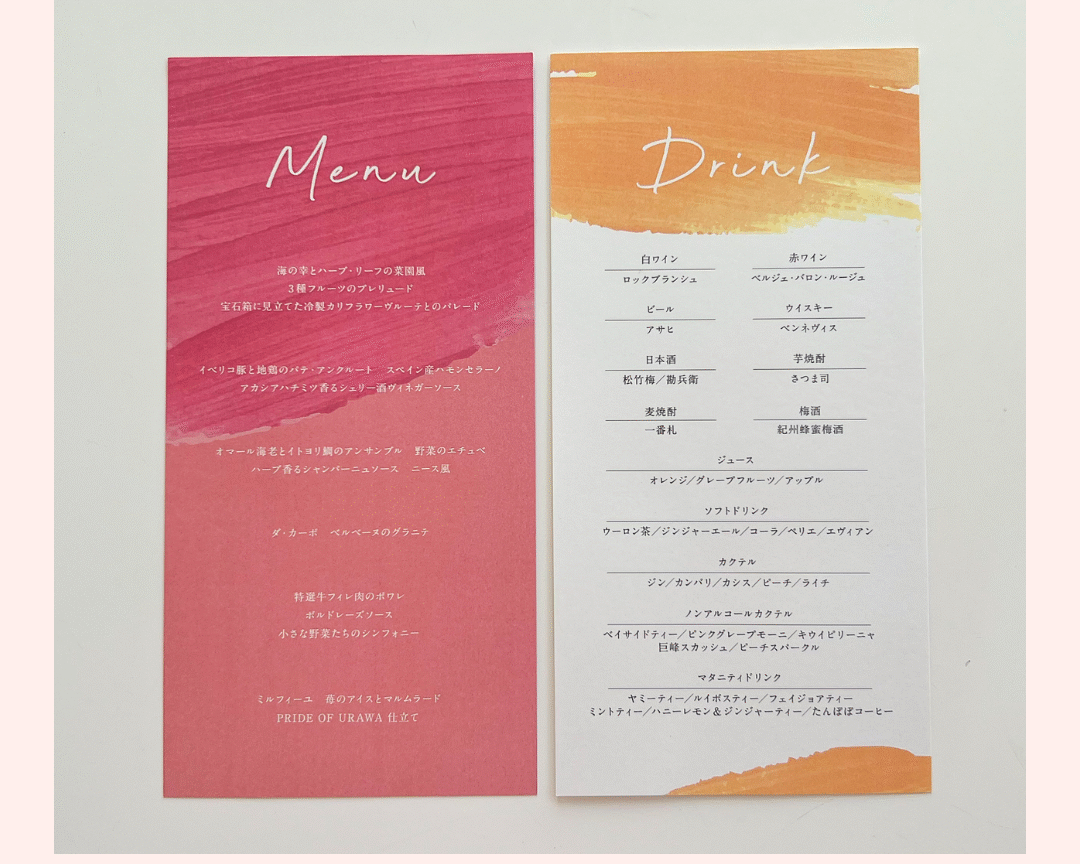 Menu
海の幸とハーブ・リーフの菜園風
3種フルーツのプレリュード
宝石箱に見立てた冷製カリフラワーヴルーテとのパレード
イベリコ豚と地鶏のパテ・アンクルート　スペイン産ハモンセラーノ
アカシアハチミツ香るシェリー酒ヴィネガーソース
オマール海老とイトヨリ鯛のアンサンブル　野菜のエチュベ
ハーブ香るシャンパーニュソース　ニース風
ダ・カーポ　ベルベーヌのグラニテ
特選牛フィレ肉のポワレ
ボルドレーズソース
小さな野菜たちのシンフォニー
ミルフィーユ　苺のアイスとマルムラード
PRIDE OF URAWA 仕立て
Drink
白ワイン
ロックブランシュ
赤ワイン
ベルジェ・バロン・ルージュ
ビール
アサヒ
ウイスキー
ベンネヴィス
日本酒
松竹梅／勘兵衛
芋焼酎
さつま司
麦焼酎
一番札
梅酒
紀州蜂蜜梅酒
ジュース
オレンジ／グレープフルーツ／アップル
ソフトドリンク
ウーロン茶／ジンジャーエール／コーラ／ペリエ／エヴィアン
カクテル
ジン／カンパリ／カシス／ピーチ／ライチ
ノンアルコールカクテル
ベイサイドティー／ピンクグレープモーニ／キウイピリーニャ
巨峰スカッシュ／ピーチスパークル
マタニティドリンク
ヤミーティー／ルイボスティー／フェイジョアティー
ミントティー／ハニーレモン＆ジンジャーティー／たんぽぽコーヒー